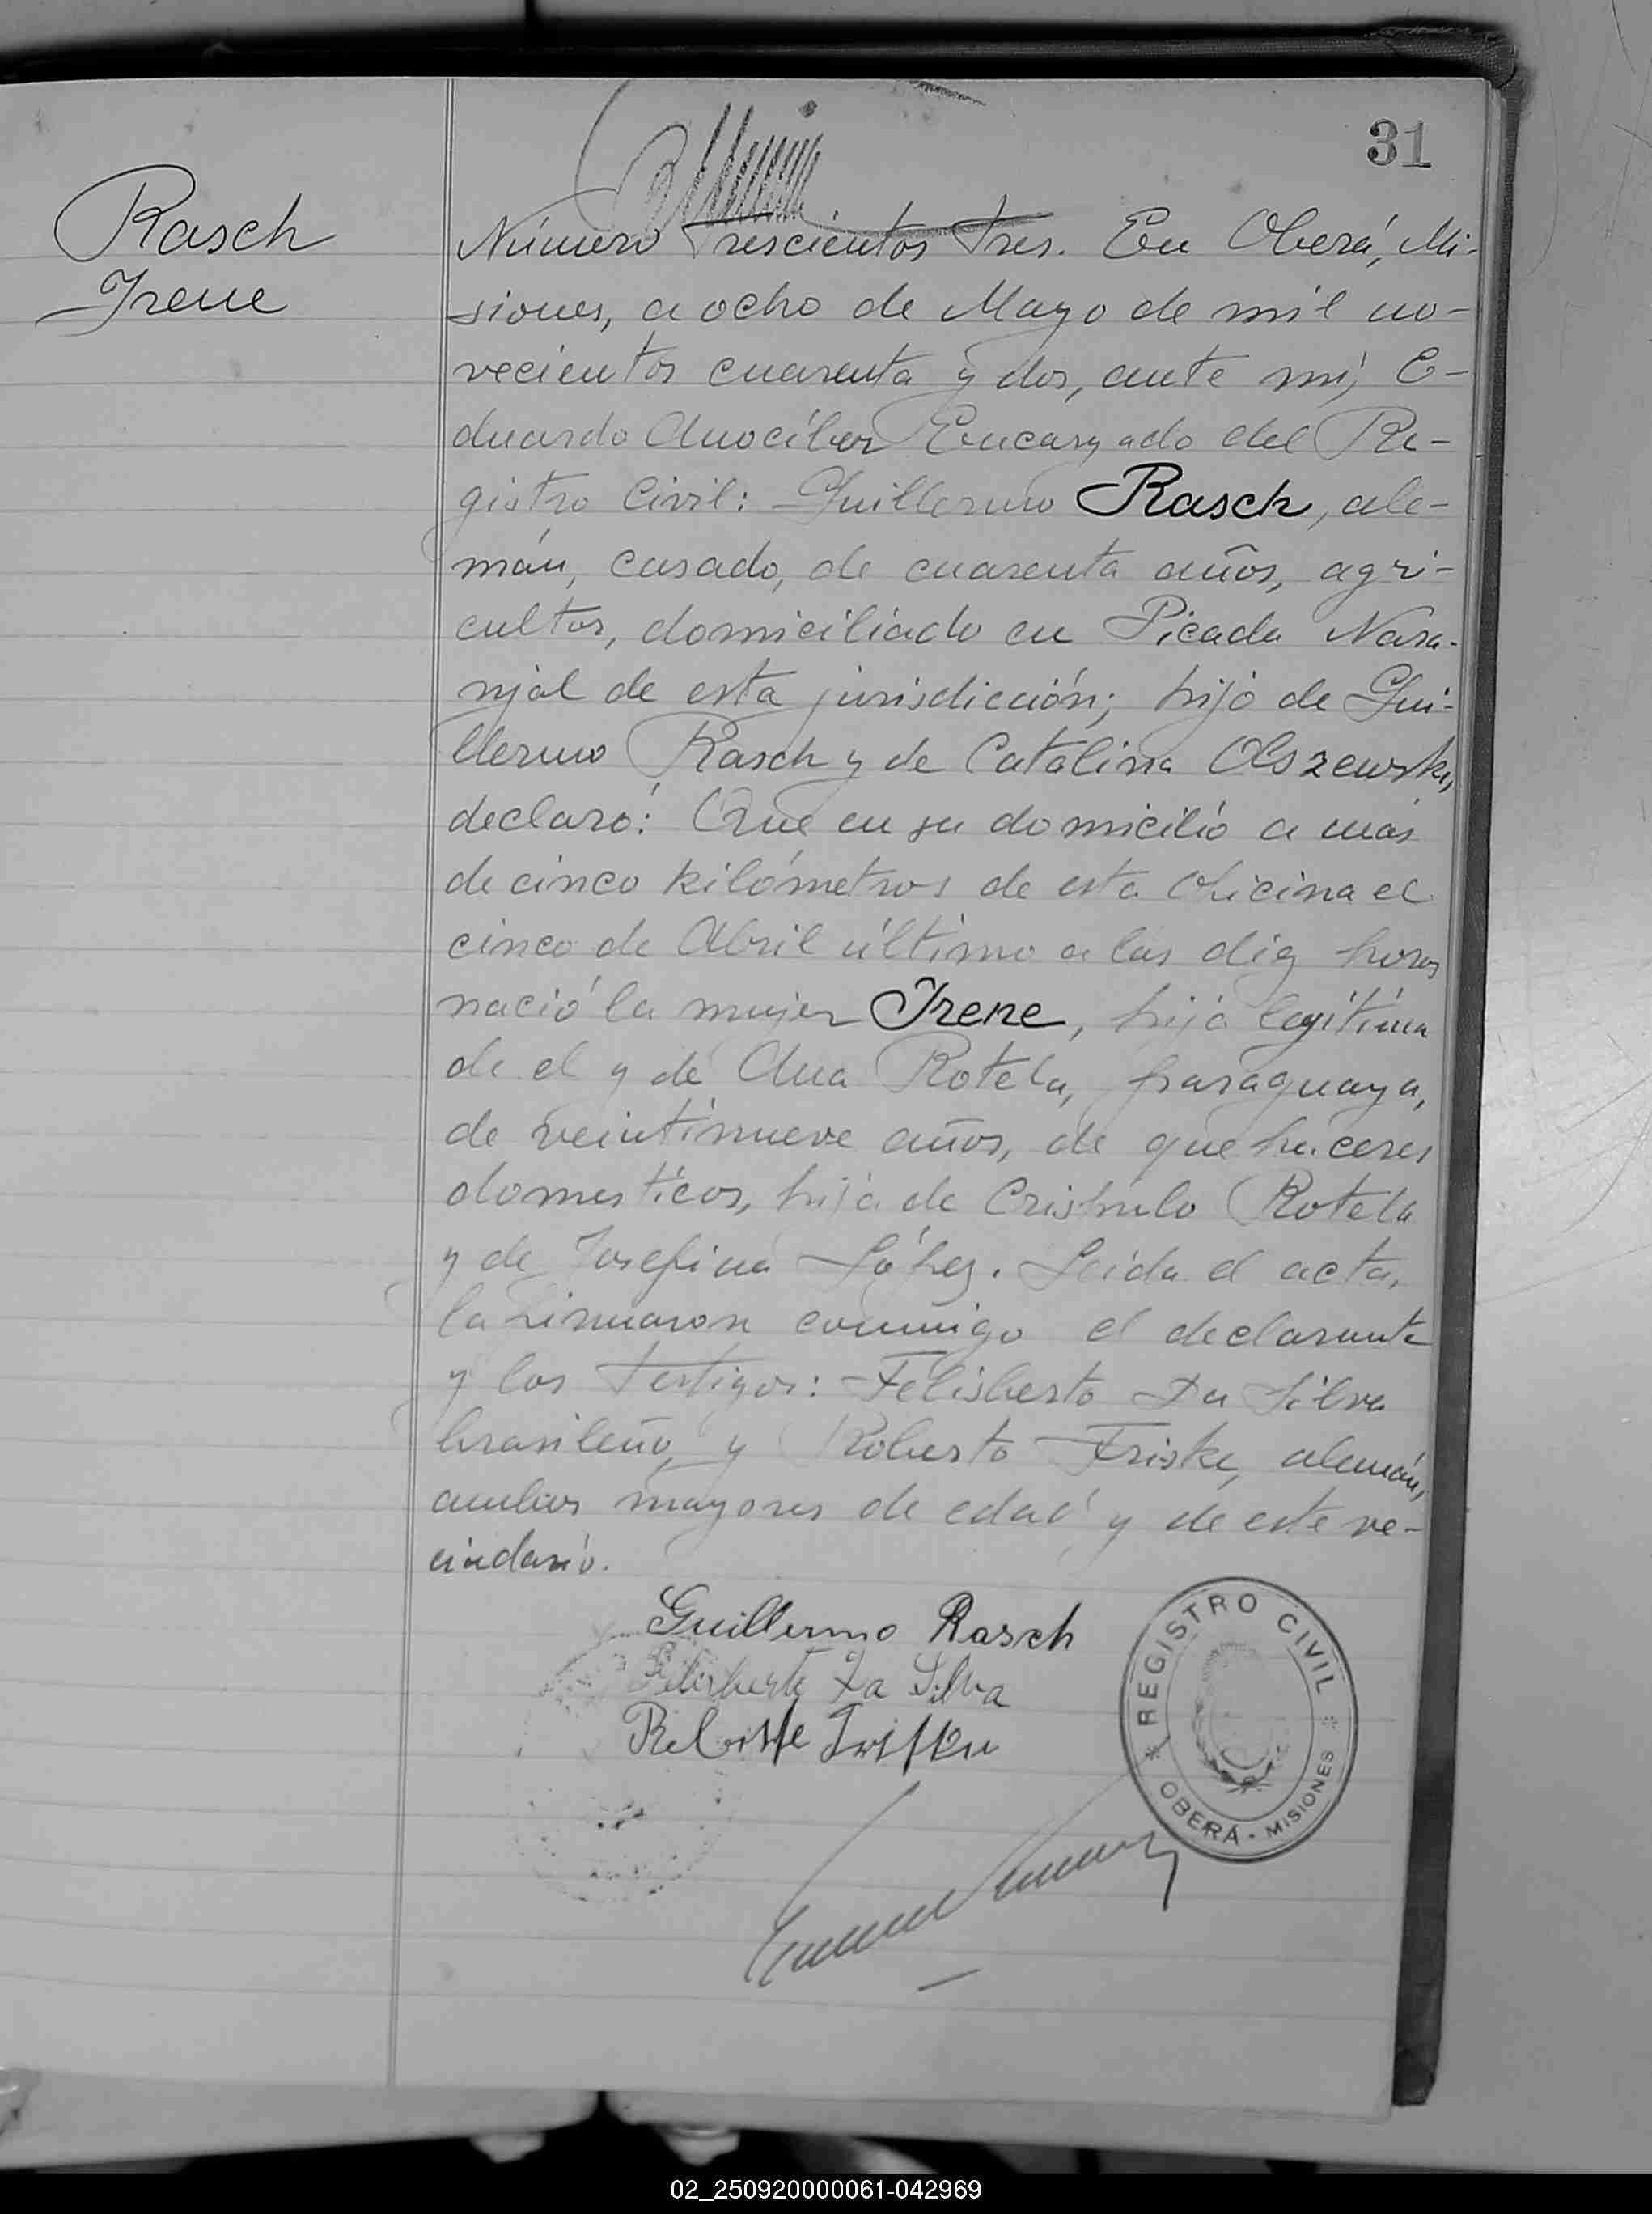 31
Rasch
Irene
Número Trescientos Tres. En Oberá, Mi-
siones, a ocho de Mayo de mil no-
vecientos cuarenta y dos, ante mí, E-
duardo Anocíbar Encargado del Re-
gistro Civil: Guillermo Rasch, ale-
mán, casado, de cuarenta años, agri-
cultor, domiciliado en Picada Nara-
njal de esta jurisdicción; hijo de Gui-
llermo Rasch y de Catalina Olszewski,
declaró: Que en su domicilio a más
de cinco kilómetros de esta Oficina el
cinco de Abril último a las diez horas
nació la mujer Irene, hija legítima
de el y de Ana Rotela, paraguaya,
de veintinueve años, de que haceres
domesticos, hija de Crispulo Rotela
y de Josefina López. Leída el acta,
la firmaron conmigo el declarante
y los testigos: Felisberto Da Silva
brasileño, y Roberto Friske, alemán,
ambos mayores de edad y de este ve-
cindario.
Guillermo Rasch
Felisberto Da Silva
REGISTRO CIVIL
OBERÁ - MISIONES
02_250920000061-042969